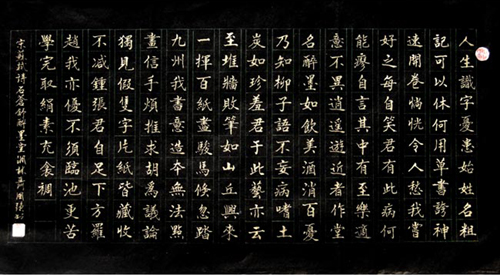 人生識字憂患始姓名粗
記可以休何用草書誇神
速開卷惝恍令人愁我嘗
好之每自笑君有此病何
能瘳自言其中有至樂適
意不異逍遙遊近者作堂
名醉墨如飲美酒消百憂
乃知柳子語不妄病嗜土
炭如珍羞君于此藝亦云
至堆牆敗筆如山丘興來
一揮百紙盡駿馬倏忽踏
九州我書意造本無法點
畫信手煩推求胡為議論
獨見假隻字片紙皆藏收
不減鍾張君自足下方羅
趙我亦優不須臨池更苦
學完取絹素充衾裯
宋蘇軾詩石蒼舒醉墨堂